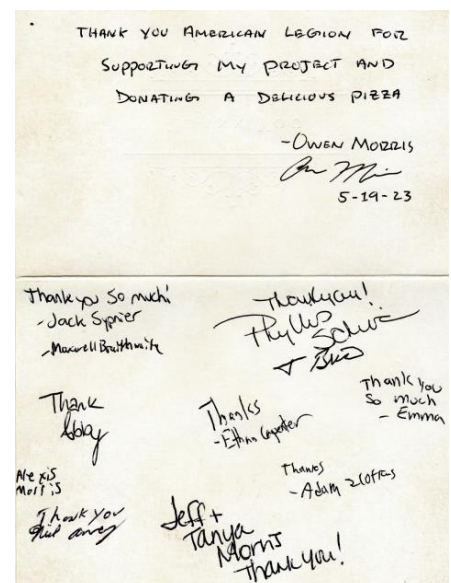 THANK YOU AMERICAN LEGION FOR
SUPPORTING MY PROJECT AND
DONATING A DELICIOUS PIZZA
-OWEN MORRIS
5-19-23
Thank you So much!
-Jack Sypnier
-Maxwell Braithwaite
Thankyou!
Phyllis
+
Thank
Abby
Thanks
-Ethan Carpenter
Thank you
So much
- Emma
Alexis
Morris
Thank you
Thanks
- Adam
Jeff +
Tanya
Morris
Thank you!